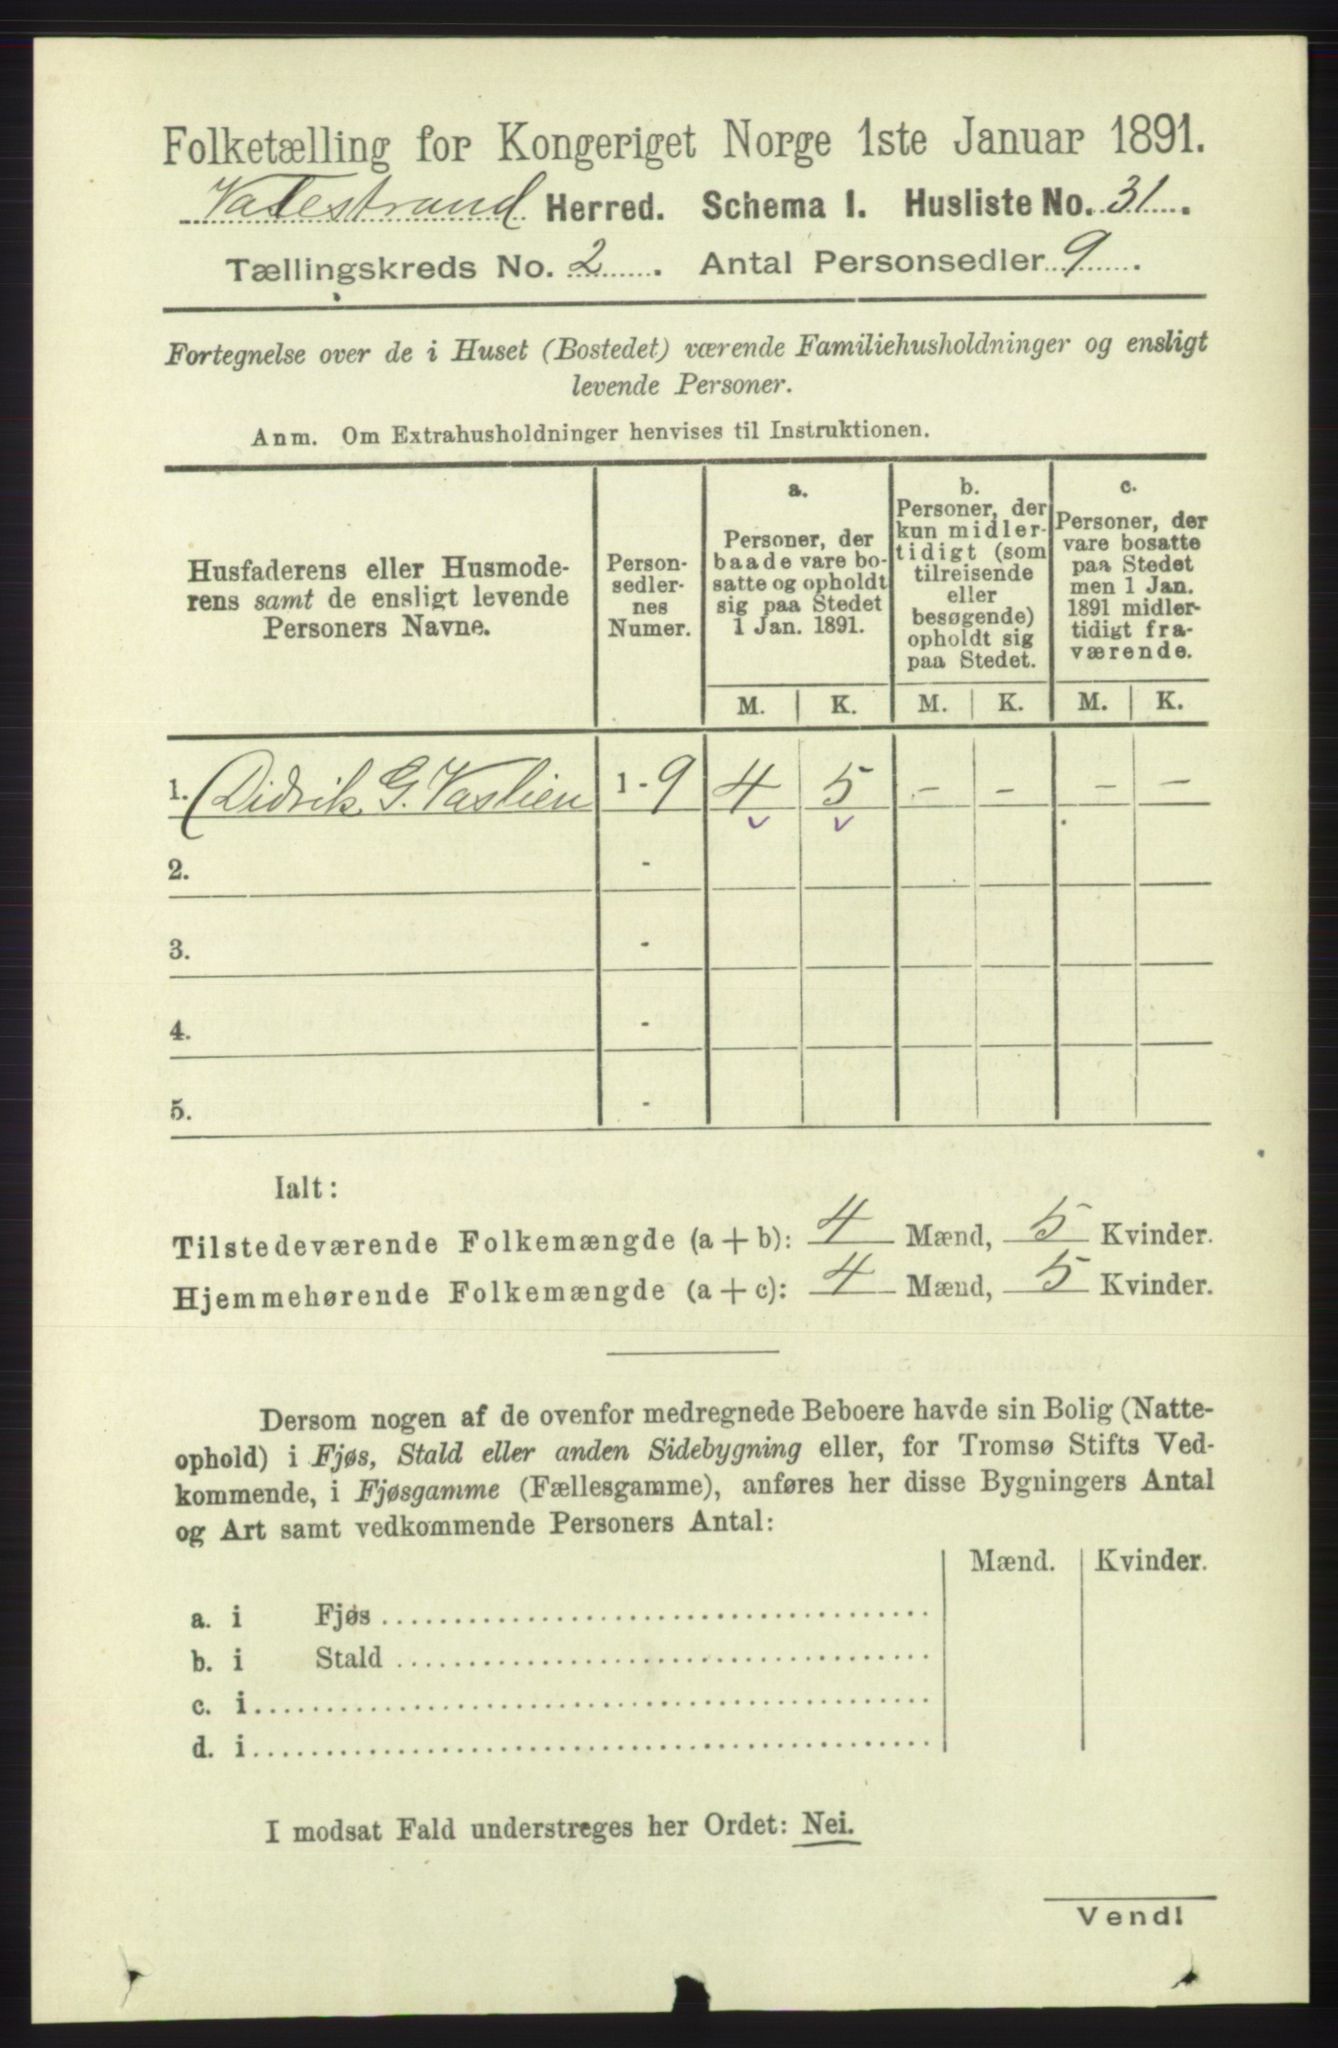 Folketælling for Kongeriget Norge 1ste Januar 1891.
Valestrand Herred. Schema 1. Husliste No. 31.
Tællingskreds No. 2. Antal Personsedler 9.
Fortegnelse over de i Huset (Bostedet) værende Familiehusholdninger og ensligt
levende Personer.
Anm. Om Extrahusholdninger henvises til Instruktionen.
Husfaderens eller Husmode-
rens samt de ensligt levende
Personers Navne.
Person-
sedler-
nes
Numer.
a.
Personer, der
baade vare bo-
satte og opholdt
sig paa Stedet
1 Jan. 1891.
b.
Personer, der
kun midler-
tidigt (som
tilreisende
eller
besøgende)
opholdt sig
paa Stedet.
c.
Personer, der
vare bosatte
paa Stedet
men 1 Jan.
1891 midler-
tidigt fra-
værende.
M. K. M. K. M. K.
1. Didrik G. Vaslien 1 - 9 4 5 - - - -
2. -
3. -
4. -
5. -
Ialt:
Tilstedeværende Folkemængde (a + b): 4 Mænd, 5 Kvinder.
Hjemmehørende Folkemængde (a + c): 4 Mænd, 5 Kvinder.
Dersom nogen af de ovenfor medregnede Beboere havde sin Bolig (Natte-
ophold) i Fjøs, Stald eller anden Sidebygning eller, for Tromsø Stifts Ved-
kommende, i Fjøsgamme (Fællesgamme), anføres her disse Bygningers Antal
og Art samt vedkommende Personers Antal:
Mænd. Kvinder.
a. i Fjøs
b. i Stald
c. i
d. i
I modsat Fald understreges her Ordet: Nei.
Vend!